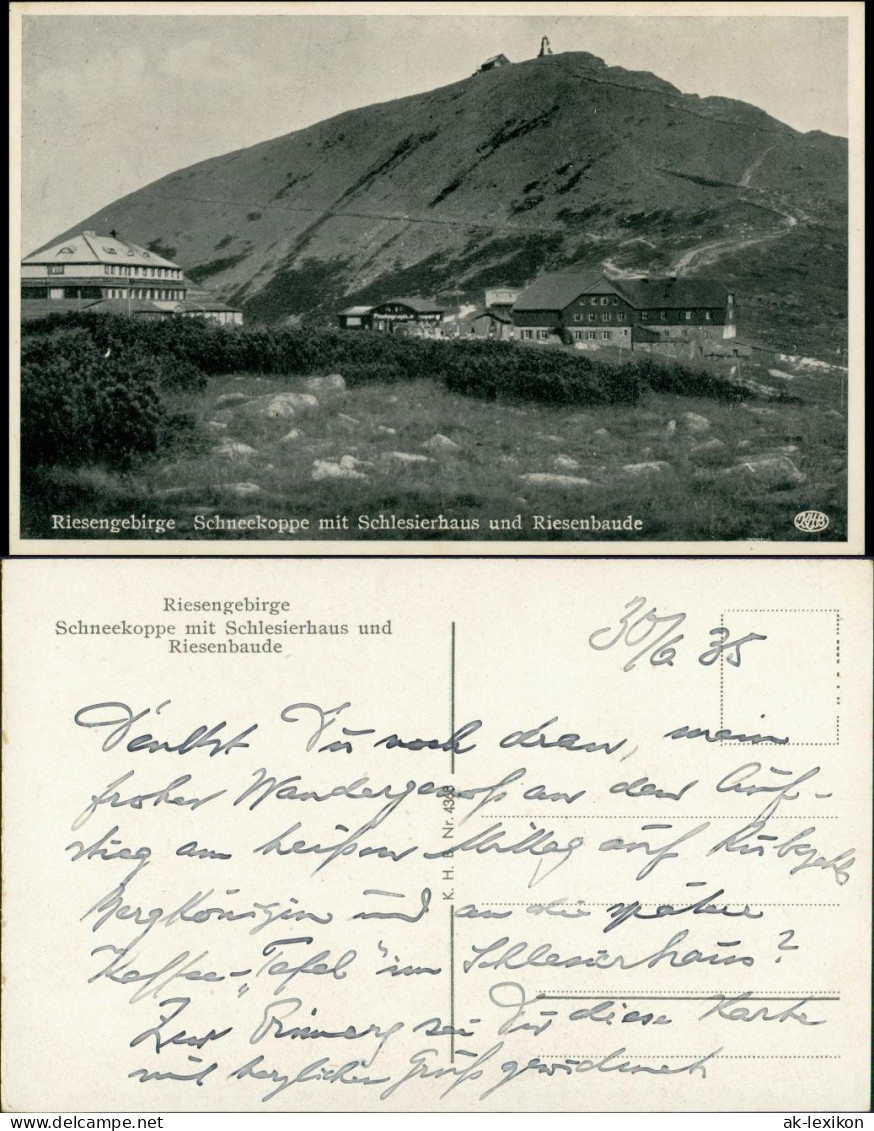 Riesengebirge Schneekoppe mit Schlesierhaus und Riesenbaude
KHB
Riesengebirge
Schneekoppe mit Schlesierhaus und
Riesenbaude
30/6 35
K. H. B. Nr. 4368
Denkst Du noch dran, mein
froher Wandergenoß an den Auf-
stieg am heißen Mittag auf Rübezahls
Bergkönigin und an die spätere
Kaffee-„Tafel" im Schlesierhaus?
Zur Erinnerg sei Dir diese Karte
mit herzlichem Gruß gewidmet
www.delcampe.net
Bartko-Reher-GbR
ak-lexikon